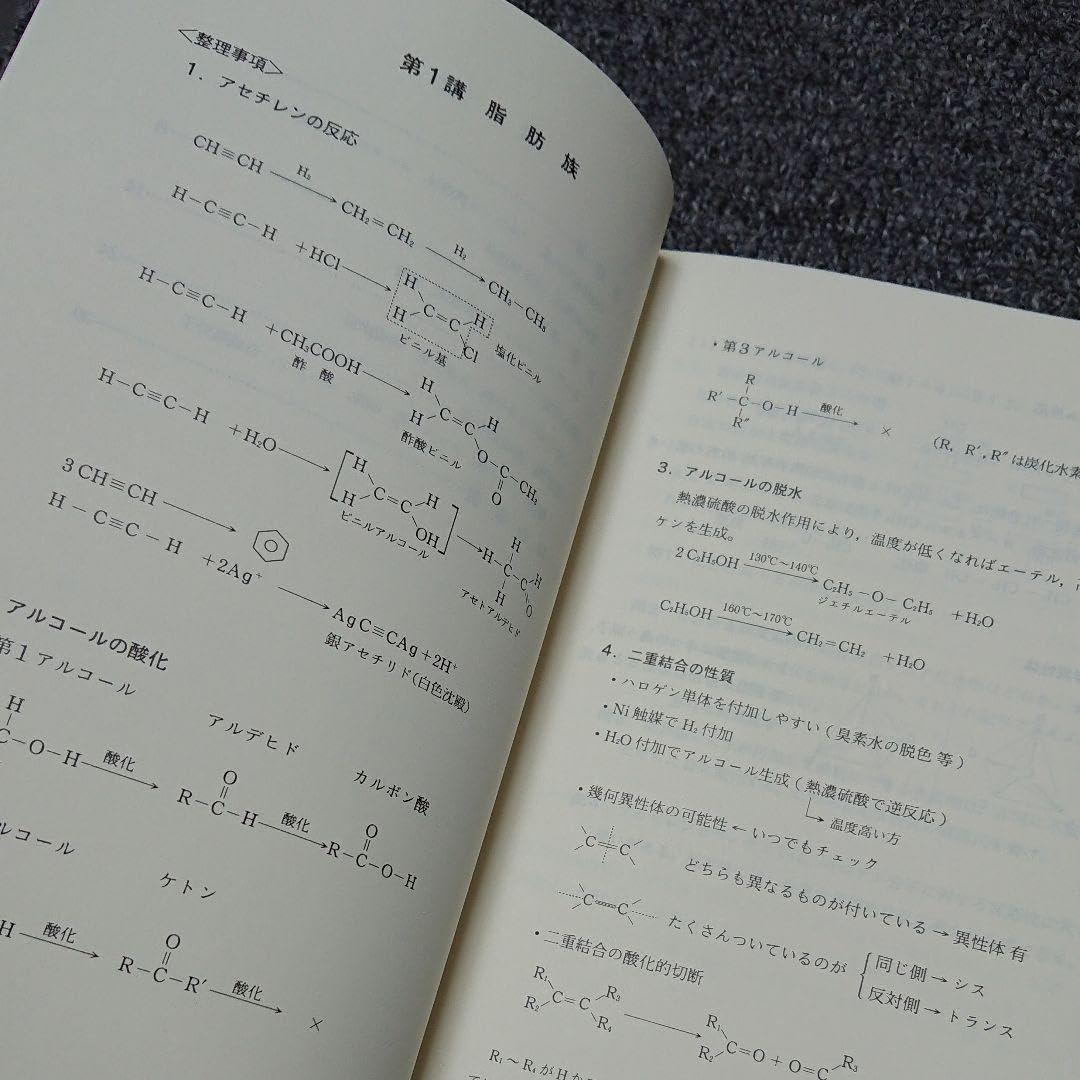 第1講 脂肪族
<整理事項>
1. アセチレンの反応
CH≡CH H₂→ CH₂=CH₂ H₂→ CH₃-CH₃
H-C≡C-H +HCl→ H H C=C H Cl
ビニル基 塩化ビニル
H-C≡C-H +CH₃COOH→ H H C=C H O-C-CH₃ O
酢酸 酢酸ビニル
H-C≡C-H +H₂O→ [H H C=C H OH]→ H H-C-C H H O
ビニルアルコール アセトアルデヒド
3CH≡CH→
H-C≡C-H +2Ag⁺→ AgC≡CAg+2H⁺
銀アセチリド(白色沈殿)
アルコールの酸化
第1アルコール アルデヒド カルボン酸
H C-O-H 酸化→ R-C-H O 酸化→ R-C-O-H O
ルコール ケトン
H 酸化→ R-C-R′ O 酸化→ ×
・第3アルコール
R R′-C-O-H R″ 酸化→ × (R, R′, R″は炭化水素
3. アルコールの脱水
熱濃硫酸の脱水作用により,温度が低くなればエーテル,
ケンを生成。
2C₂H₅OH 130℃～140℃→ C₂H₅-O-C₂H₅ +H₂O
ジエチルエーテル
C₂H₅OH 160℃～170℃→ CH₂=CH₂ +H₂O
4. 二重結合の性質
・ハロゲン単体を付加しやすい(臭素水の脱色等)
・Ni触媒でH₂付加
・H₂O付加でアルコール生成(熱濃硫酸で逆反応)
→温度高い方
・幾何異性体の可能性←いつでもチェック
C=C どちらも異なるものが付いている→異性体有
C=C たくさんついているのが { 同じ側→シス
反対側→トランス
・二重結合の酸化的切断
R₁ R₂ C=C R₃ R₄→ R₁ R₂ C=O + O=C R₃
R₁～R₄がH